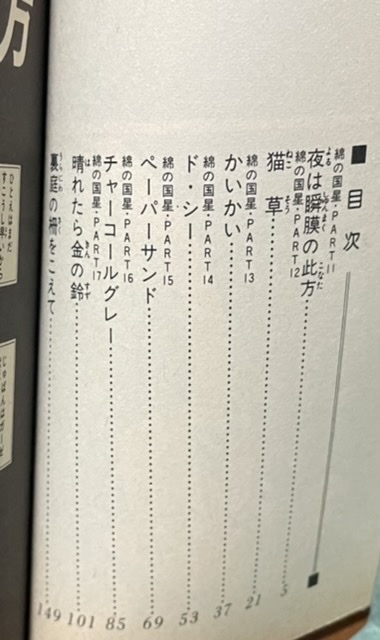 ■目次
綿の国星・PART11
夜は瞬膜の此方……5
綿の国星・PART12
猫草……21
綿の国星・PART13
かいかい……37
綿の国星・PART14
ド・シー……53
綿の国星・PART15
ペーパーサンド……69
綿の国星・PART16
チャーコールグレー……85
綿の国星・PART17
晴れたら金の鈴……101
裏庭の柵をこえて……149
方
ひとえはまだ